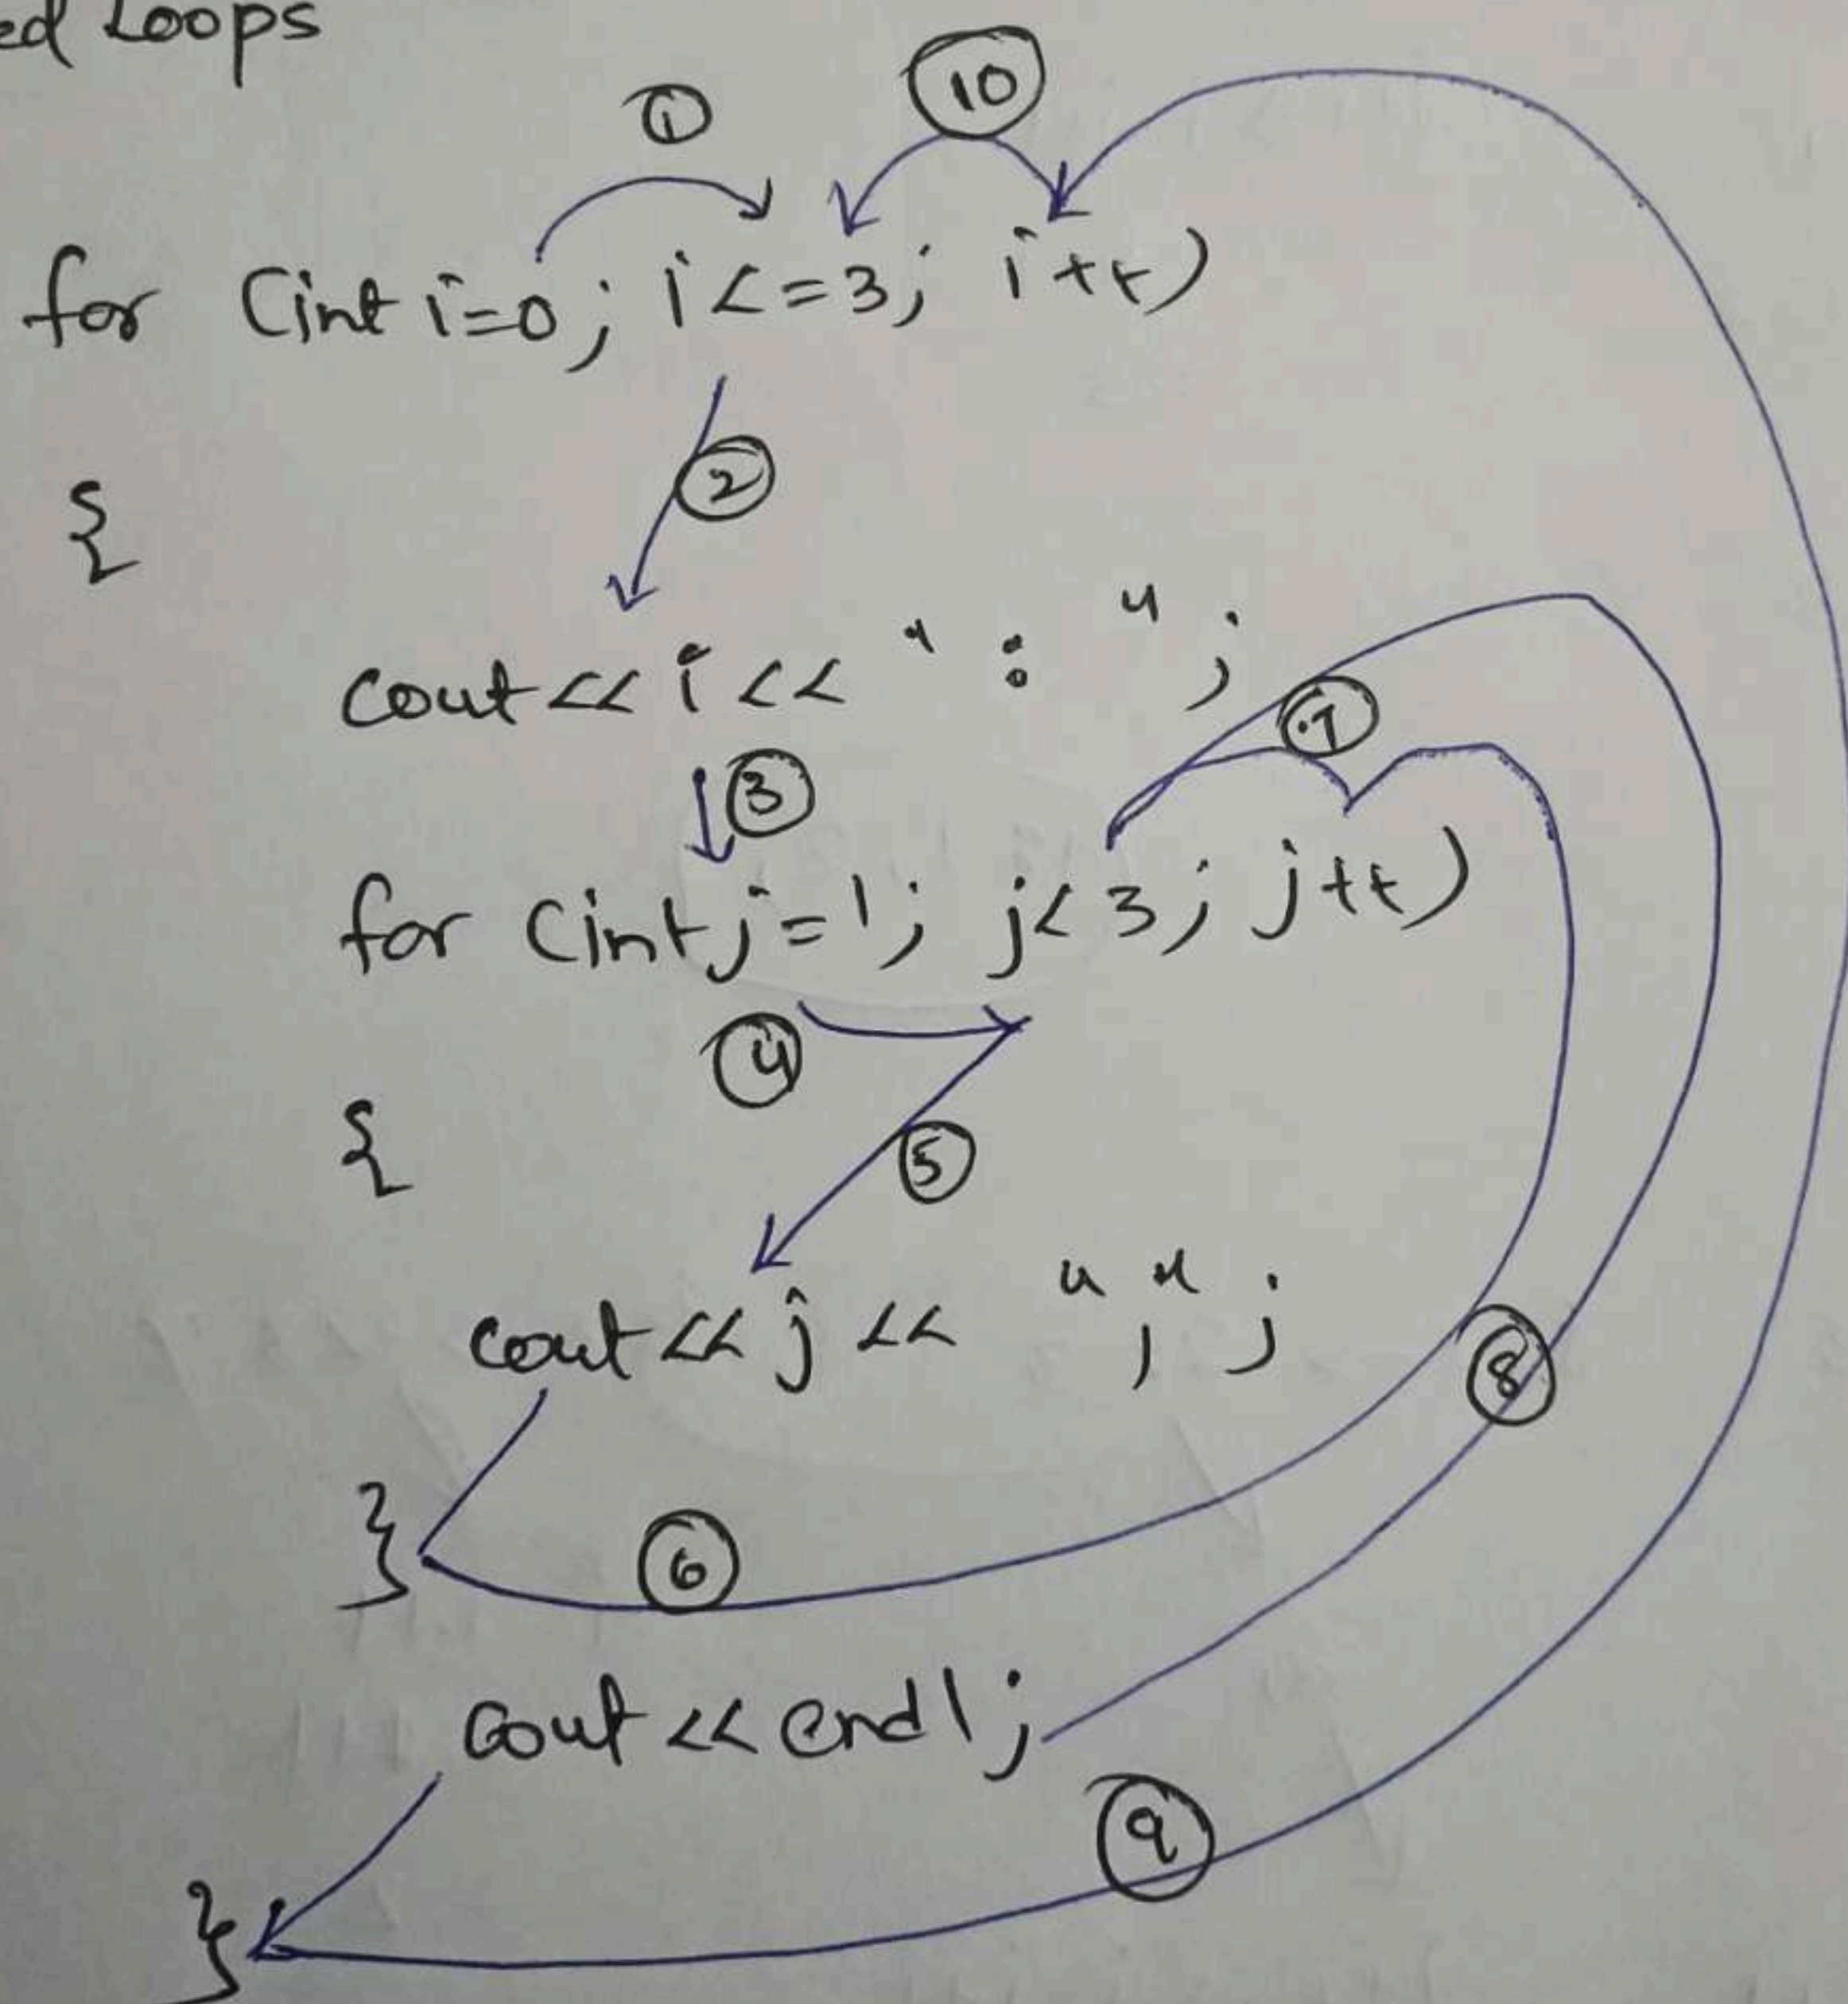 ed Loops
① ⑩
for (int i=0; i<=3; i++)
②
{
cout<< i << " : ";
⑦
③
for (int j=1; j<3; j++)
④
{
⑤
cout<< j << ",";
⑧
}
⑥
cout<<endl;
⑨
}